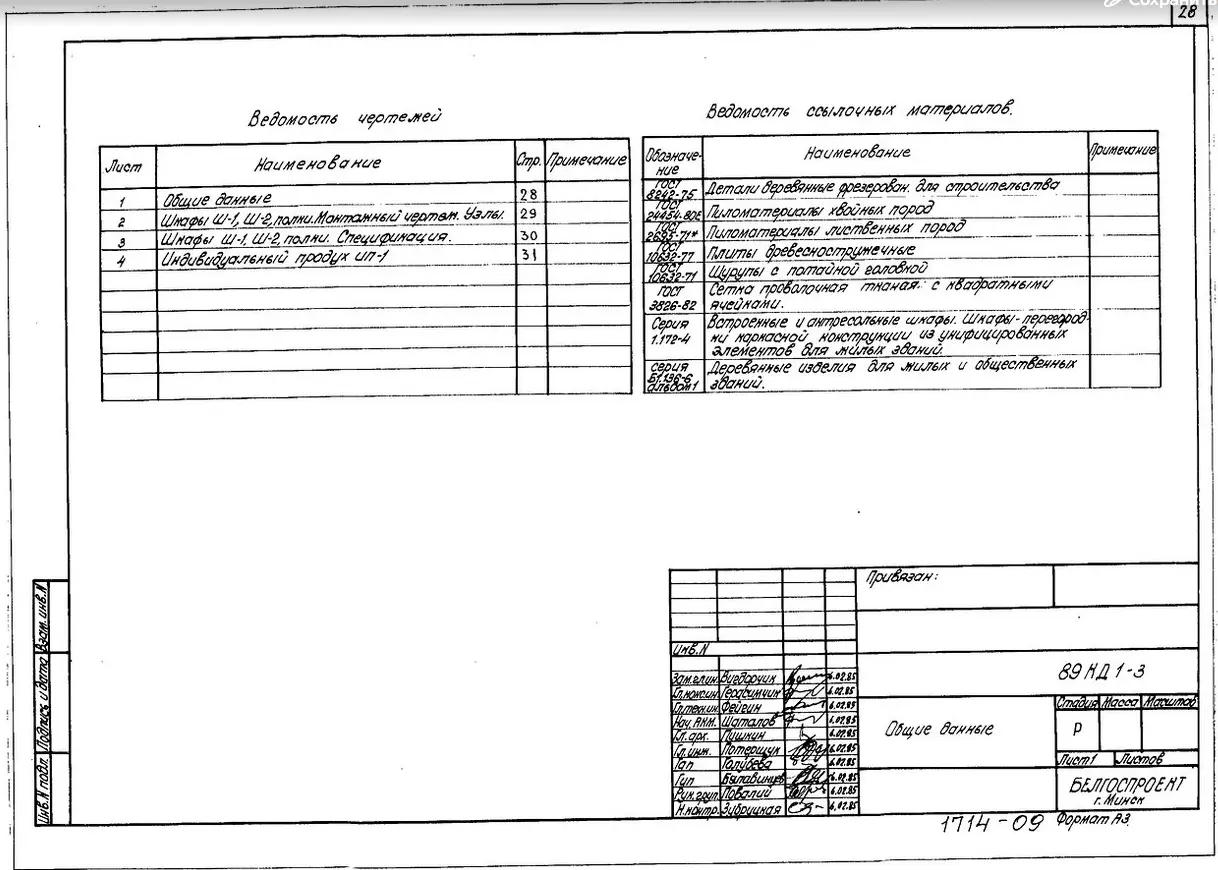 Сохранить
28
Ведомость чертежей
Лист Наименование Стр. Примечание
1 Общие данные 28
2 Шкафы Ш-1, Ш-2, полки. Монтажный чертеж. Узлы. 29
3 Шкафы Ш-1, Ш-2, полки. Спецификация. 30
4 Индивидуальный продух ИП-1 31
Ведомость ссылочных материалов.
Обозначе-
ние
Наименование Примечание
ГОСТ
8242-75
Детали деревянные фрезерован. для строительства
ГОСТ
24454-80Е
Пиломатериалы хвойных пород
ГОСТ
2695-71*
Пиломатериалы лиственных пород
ГОСТ
10632-77
Плиты древесностружечные
ГОСТ
10632-71
Шурупы с потайной головкой
ГОСТ
3826-82
Сетка проволочная тканая с квадратными
ячейками.
Серия
1.172-4
Встроенные и антресольные шкафы. Шкафы-перегород
ки каркасной конструкции из унифицированных
элементов для жилых зданий.
серия
Б1.136-6
альбом 1
Деревянные изделия для жилых и общественных
зданий.
Привязан:
Инв.N
Зам.гл.ин. Вигдорчик 6.02.85
Гл.конс.ин. Герасимчик 6.02.85
Гл.техн.ин. Фейгин 6.02.85
Нач.АКМ. Шаталов 6.02.85
Гл.арх. Пушкин 6.02.85
Гл.инж. Потерщук 6.02.85
Гап Голубева 6.02.85
Гип 6.02.85
Рук.груп. Повалий 6.02.85
Н.контр. Зубрицкая 6.02.85
89 КД 1-3
Общие данные
Стадия Масса Масштаб
Р
Лист 1 Листов
БЕЛГОСПРОЕКТ
г. Минск
1714-09 Формат А3
Взам.инв.N
Подпись и дата
Инв.N подл.